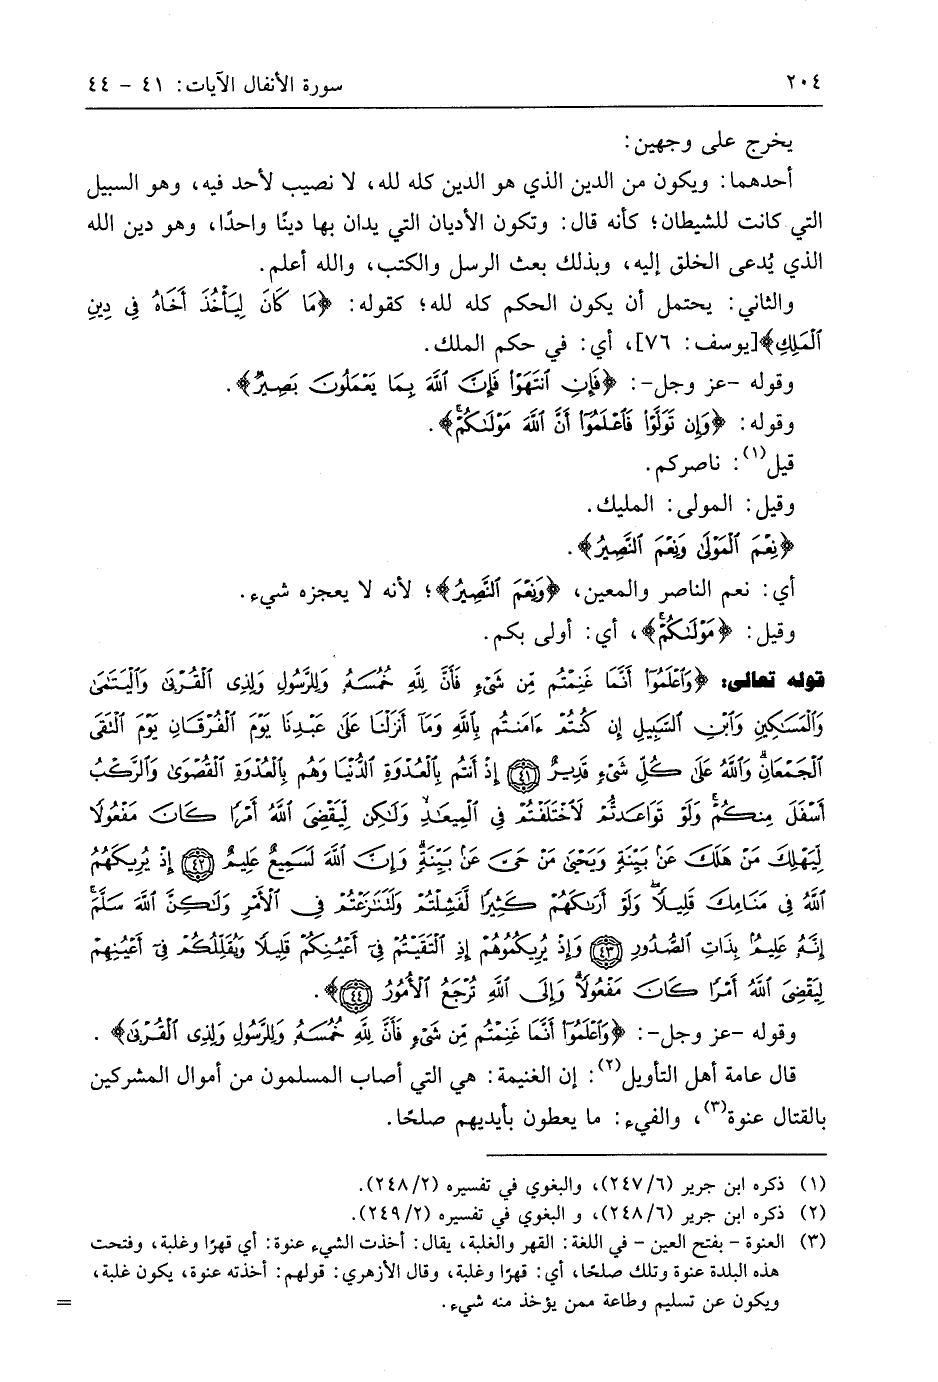 ٢٠٤ سورة الأنفال الآيات: ٤١ - ٤٤
يخرج على وجهين:
أحدهما: ويكون من الدين الذي هو الدين كله لله، لا نصيب لأحد فيه، وهو السبيل
التي كانت للشيطان؛ كأنه قال: وتكون الأديان التي يدان بها دينًا واحدًا، وهو دين الله
الذي يُدعى الخلق إليه، وبذلك بعث الرسل والكتب، والله أعلم.
والثاني: يحتمل أن يكون الحكم كله لله؛ كقوله: ﴿مَا كَانَ لِيَأْخُذَ أَخَاهُ فِي دِينِ
ٱلْمَلِكِ﴾[يوسف: ٧٦]، أي: في حكم الملك.
وقوله -عز وجل-: ﴿فَإِنِ ٱنتَهَوْاْ فَإِنَّ ٱللَّهَ بِمَا يَعْمَلُونَ بَصِيرٌ﴾.
وقوله: ﴿وَإِن تَوَلَّوْاْ فَٱعْلَمُوٓاْ أَنَّ ٱللَّهَ مَوْلَىٰكُمْۚ﴾.
قيل(١): ناصركم.
وقيل: المولى: المليك.
﴿نِعْمَ ٱلْمَوْلَىٰ وَنِعْمَ ٱلنَّصِيرُ﴾.
أي: نعم الناصر والمعين، ﴿وَنِعْمَ ٱلنَّصِيرُ﴾؛ لأنه لا يعجزه شيء.
وقيل: ﴿مَوْلَىٰكُمْۚ﴾، أي: أولى بكم.
قوله تعالى: ﴿وَٱعْلَمُوٓاْ أَنَّمَا غَنِمْتُم مِّن شَىْءٍ فَأَنَّ لِلَّهِ خُمُسَهُۥ وَلِلرَّسُولِ وَلِذِى ٱلْقُرْبَىٰ وَٱلْيَتَٰمَىٰ
وَٱلْمَسَٰكِينِ وَٱبْنِ ٱلسَّبِيلِ إِن كُنتُمْ ءَامَنتُم بِٱللَّهِ وَمَآ أَنزَلْنَا عَلَىٰ عَبْدِنَا يَوْمَ ٱلْفُرْقَانِ يَوْمَ ٱلْتَقَى
ٱلْجَمْعَانِۗ وَٱللَّهُ عَلَىٰ كُلِّ شَىْءٍ قَدِيرٌ ٤١ إِذْ أَنتُم بِٱلْعُدْوَةِ ٱلدُّنْيَا وَهُم بِٱلْعُدْوَةِ ٱلْقُصْوَىٰ وَٱلرَّكْبُ
أَسْفَلَ مِنكُمْۚ وَلَوْ تَوَاعَدتُّمْ لَٱخْتَلَفْتُمْ فِى ٱلْمِيعَٰدِۙ وَلَٰكِن لِّيَقْضِىَ ٱللَّهُ أَمْرًا كَانَ مَفْعُولًا
لِّيَهْلِكَ مَنْ هَلَكَ عَنۢ بَيِّنَةٍ وَيَحْيَىٰ مَنْ حَىَّ عَنۢ بَيِّنَةٍۗ وَإِنَّ ٱللَّهَ لَسَمِيعٌ عَلِيمٌ ٤٢ إِذْ يُرِيكَهُمُ
ٱللَّهُ فِى مَنَامِكَ قَلِيلًاۖ وَلَوْ أَرَىٰكَهُمْ كَثِيرًا لَّفَشِلْتُمْ وَلَتَنَٰزَعْتُمْ فِى ٱلْأَمْرِ وَلَٰكِنَّ ٱللَّهَ سَلَّمَۗ
إِنَّهُۥ عَلِيمٌۢ بِذَاتِ ٱلصُّدُورِ ٤٣ وَإِذْ يُرِيكُمُوهُمْ إِذِ ٱلْتَقَيْتُمْ فِىٓ أَعْيُنِكُمْ قَلِيلًا وَيُقَلِّلُكُمْ فِىٓ أَعْيُنِهِمْ
لِيَقْضِىَ ٱللَّهُ أَمْرًا كَانَ مَفْعُولًاۗ وَإِلَى ٱللَّهِ تُرْجَعُ ٱلْأُمُورُ ٤٤﴾.
وقوله -عز وجل-: ﴿وَٱعْلَمُوٓاْ أَنَّمَا غَنِمْتُم مِّن شَىْءٍ فَأَنَّ لِلَّهِ خُمُسَهُۥ وَلِلرَّسُولِ وَلِذِى ٱلْقُرْبَىٰ﴾ .
قال عامة أهل التأويل(٢): إن الغنيمة: هي التي أصاب المسلمون من أموال المشركين
بالقتال عنوة(٣)، والفيء: ما يعطون بأيديهم صلحًا.
(١) ذكره ابن جرير (٢٤٧/٦)، والبغوي في تفسيره (٢٤٨/٢).
(٢) ذكره ابن جرير (٢٤٨/٦)، و البغوي في تفسيره (٢٤٩/٢).
(٣) العنوة - بفتح العين - في اللغة: القهر والغلبة، يقال: أخذت الشيء عنوة: أي قهرًا وغلبة، وفتحت
هذه البلدة عنوة وتلك صلحًا، أي: قهرًا وغلبة، وقال الأزهري: قولهم: أخذته عنوة، يكون غلبة،
ويكون عن تسليم وطاعة ممن يؤخذ منه شيء. =